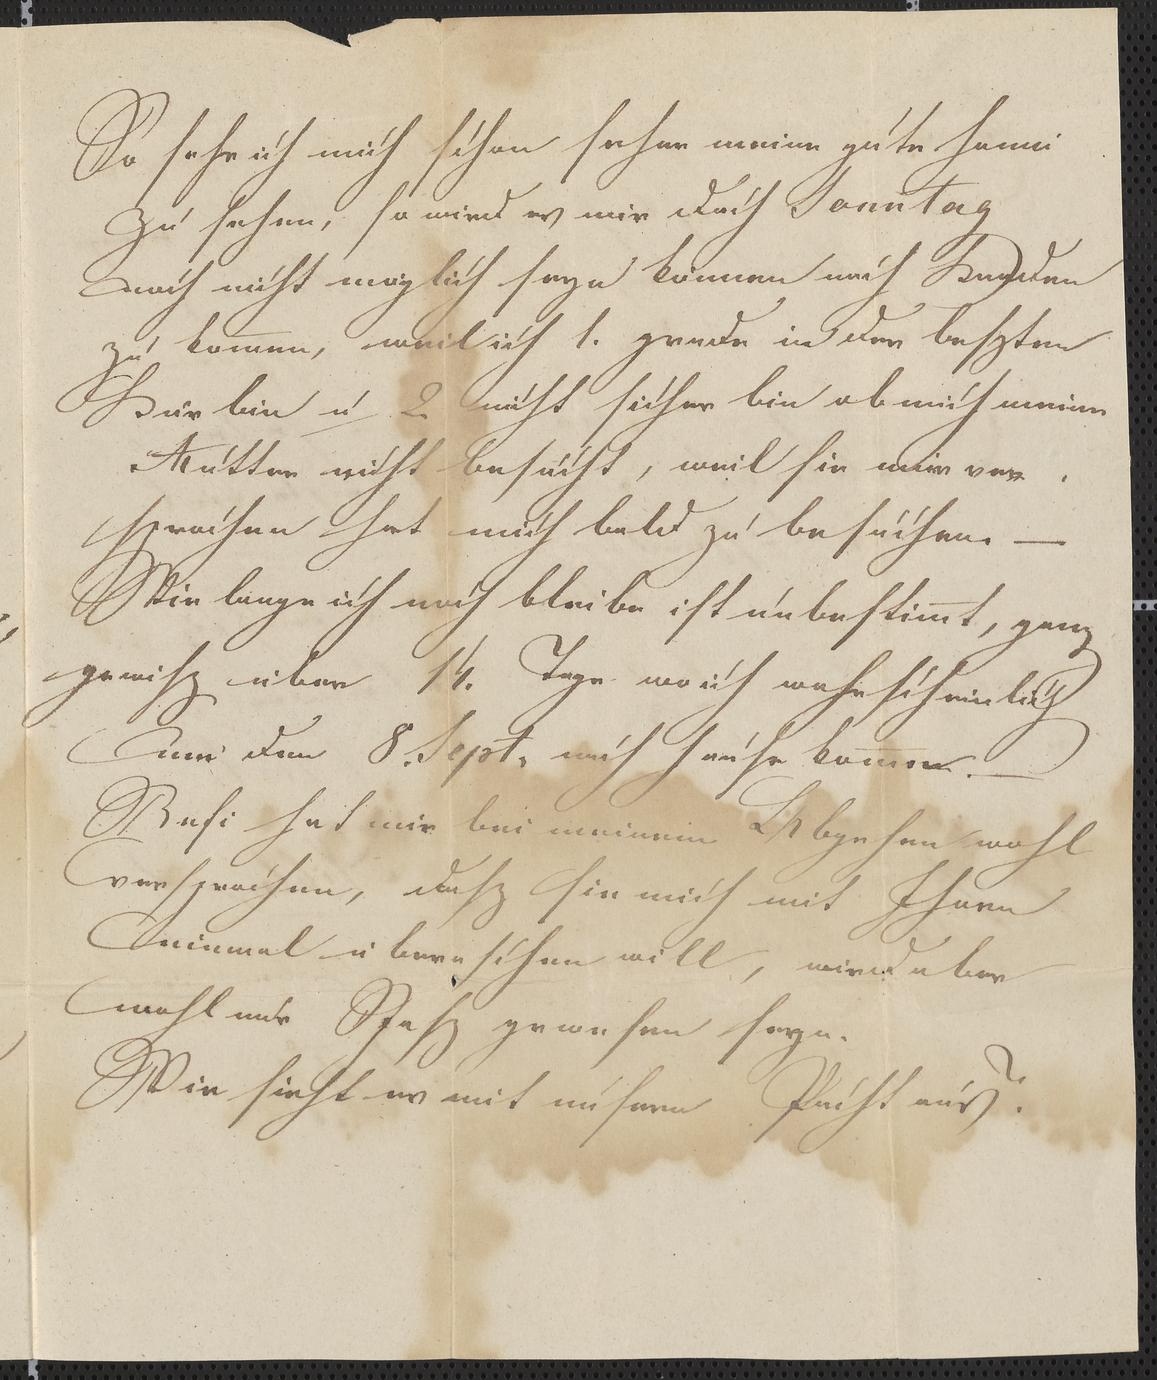 So sehr ich mich schon sehne meine gute Hanni
zu sehen, so wird es mir doch Sonntag
noch nicht möglich seyn können nach Baaden
zu kom̅en, weil ich 1. grade in der beszten
Kur bin u 2 nicht sicher bin ob mich meine
Mutter nicht besucht, weil sie mir ver
sprochen hat mich bald zu besuchen. —
Wie lange ich noch bleibe ist unbestim̅t, ganz
gewisz über 14. Tage wo ich wahrscheinlich
um den 8. Sept. nach Hause kom̅en. —
hat mir bei meinem Abgehen wohl
versprochen, dasz sie mich mit Ihnen
einmal überraschen will, wird aber
wohl nur Spasz gewesen seyn.
Wie sieht es mit unserer Pacht aus?